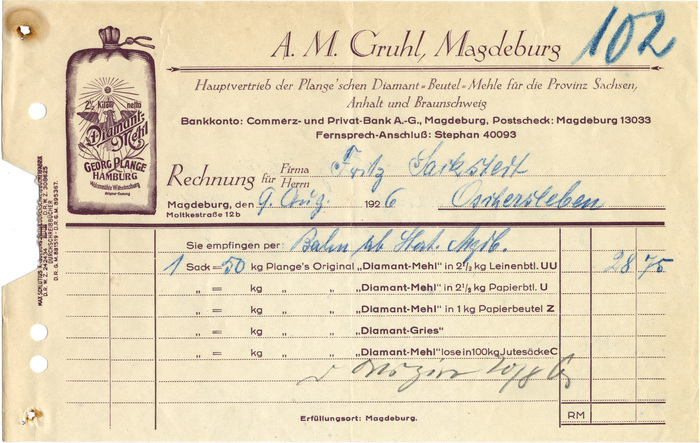 102
A. M. Gruhl, Magdeburg
Hauptvertrieb der Plange'schen Diamant-Beutel-Mehle für die Provinz Sachsen,
Anhalt und Braunschweig
Bankkonto: Commerz- und Privat-Bank A.-G., Magdeburg, Postscheck: Magdeburg 13033
Fernsprech-Anschluß: Stephan 40093
2½ Kilo netto
Diamant-
Mehl
GEORG PLANGE
HAMBURG
Rechnung für Firma Herrn Fritz
Magdeburg, den 9. Aug. 1926 Oschersleben
Moltkestraße 12b
Sie empfingen per: Bahn ab
1 Sack = 50 kg Plange's Original „Diamant-Mehl" in 2½ kg Leinenbtl. UU 28 75
„ = kg „ „ „Diamant-Mehl" in 2½ kg Papierbtl. U
„ = kg „ „ „Diamant-Mehl" in 1 kg Papierbeutel Z
„ = kg „ „ „Diamant-Gries"
„ = kg „ „ „Diamant-Mehl" lose in 100kg Jutesäcke C
RM
Erfüllungsort: Magdeburg.